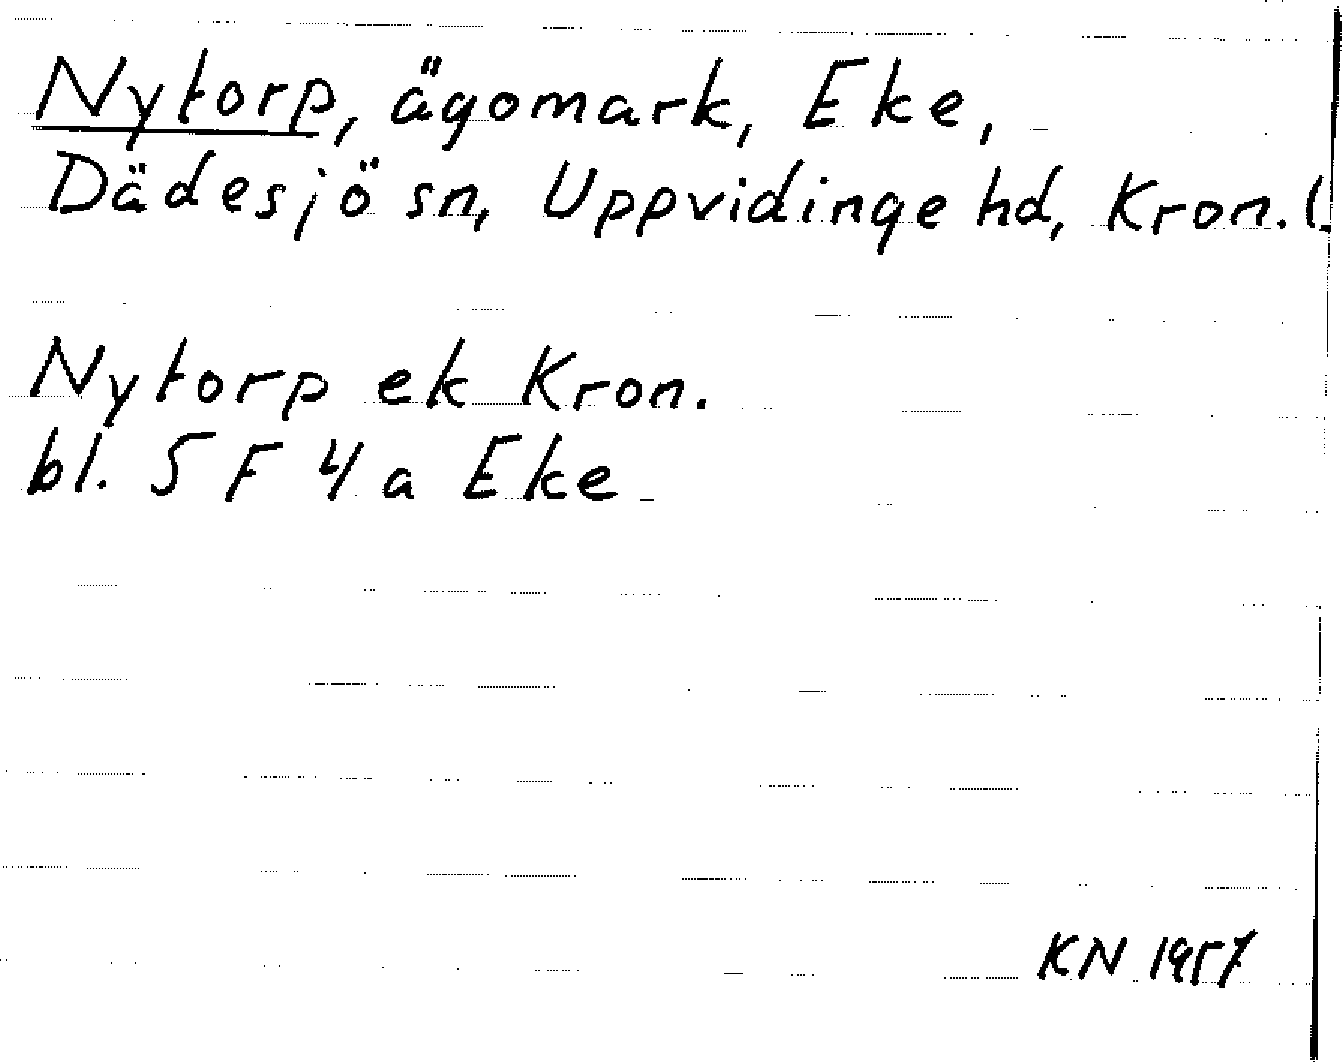 Nytorp, ägomark, Eke,
Dädesjö sn, Uppvidinge hd, Kron.l.
Nytorp ek Kron.
bl. 5 F 4 a Eke
KN 1957